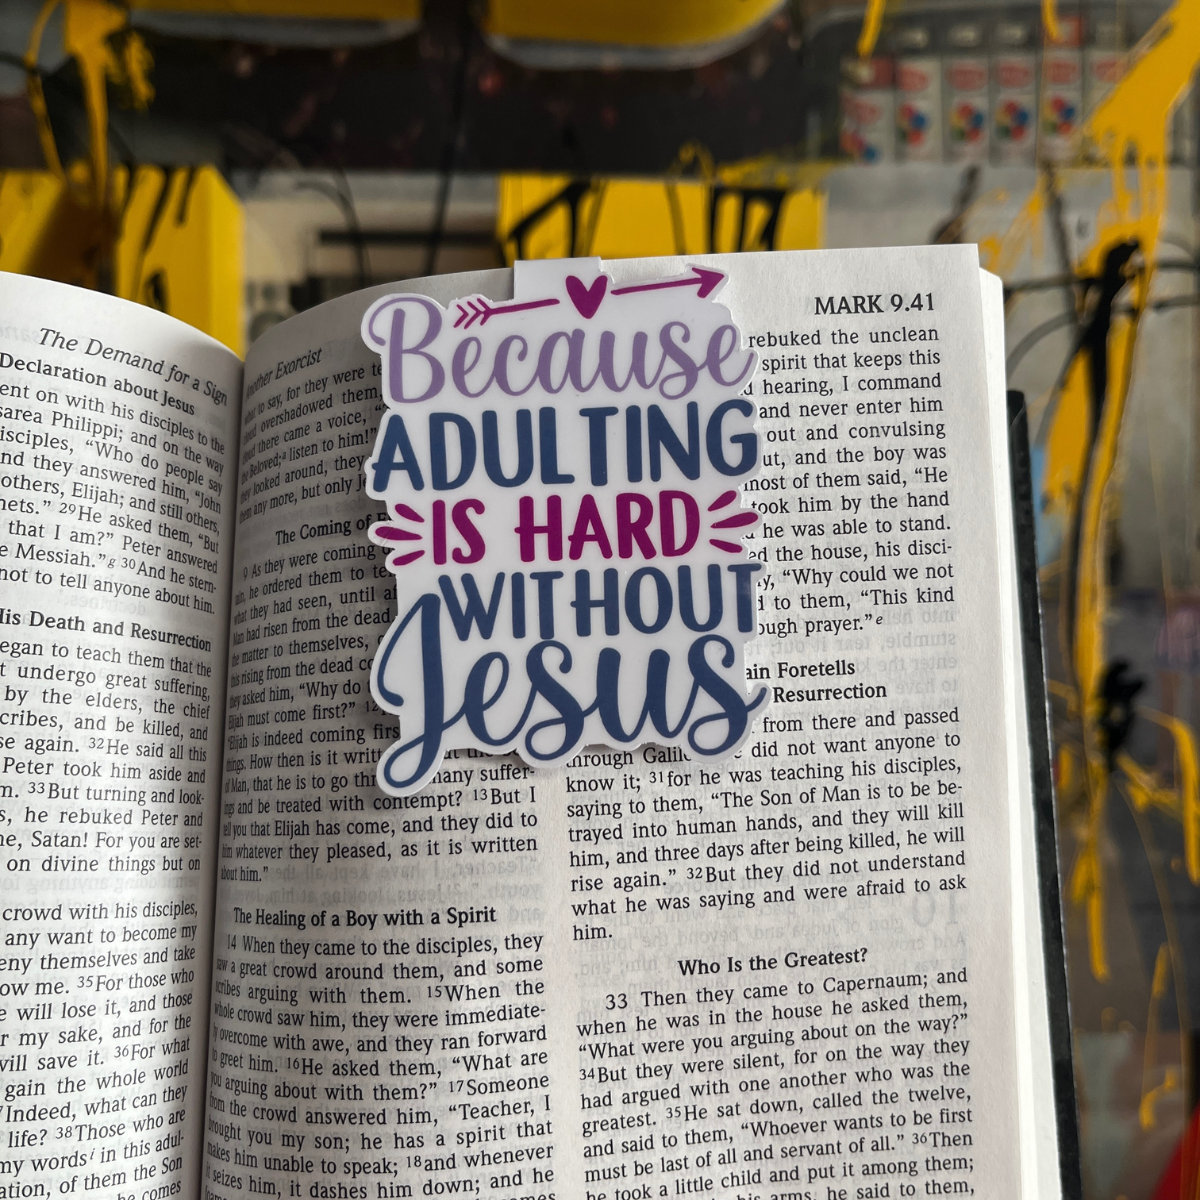 The Demand for a Sign
Declaration about Jesus
ent on with his disciples to the
sarea Philippi; and on the way
isciples, “Who do people say
nd they answered him, “John
others, Elijah; and still others,
hets.” 29He asked them, “But
that I am?” Peter answered
e Messiah.”g 30And he stern-
not to tell anyone about him.
His Death and Resurrection
egan to teach them that the
t undergo great suffering,
by the elders, the chief
cribes, and be killed, and
se again. 32He said all this
Peter took him aside and
m. 33But turning and look-
s, he rebuked Peter and
ne, Satan! For you are set-
on divine things but on
crowd with his disciples,
any want to become my
eny themselves and take
ow me. 35For those who
e will lose it, and those
r my sake, and for the
will save it. 36For what
gain the whole world
Indeed, what can they
life? 38Those who are
my words i in this adul-
ation, of them the Son
he comes
Another Exorcist
to say, for they were te
overshadowed them,
there came a voice, “
the Beloved;a listen to him!”
they looked around, they
them any more, but only Je
The Coming of E
9 As they were coming
he ordered them to te
what they had seen, until af
Man had risen from the dead
the matter to themselves,
this rising from the dead co
they asked him, “Why do
Elijah must come first?” 12
“Elijah is indeed coming firs
things. How then is it writt
of Man, that he is to go th many suffer-
ings and be treated with contempt? 13But I
tell you that Elijah has come, and they did to
him whatever they pleased, as it is written
about him.”
The Healing of a Boy with a Spirit
14 When they came to the disciples, they
saw a great crowd around them, and some
scribes arguing with them. 15When the
whole crowd saw him, they were immediate-
ly overcome with awe, and they ran forward
to greet him. 16He asked them, “What are
you arguing about with them?” 17Someone
from the crowd answered him, “Teacher, I
brought you my son; he has a spirit that
makes him unable to speak; 18and whenever
it seizes him, it dashes him down; and he
Because
ADULTING
IS HARD
WITHOUT
Jesus
MARK 9.41
rebuked the unclean
spirit that keeps this
hearing, I command
and never enter him
out and convulsing
ut, and the boy was
most of them said, “He
took him by the hand
he was able to stand.
ed the house, his disci-
y, “Why could we not
to them, “This kind
ough prayer.”e
ain Foretells
Resurrection
from there and passed
through Galil did not want anyone to
know it; 31for he was teaching his disciples,
saying to them, “The Son of Man is to be be-
trayed into human hands, and they will kill
him, and three days after being killed, he will
rise again.” 32But they did not understand
what he was saying and were afraid to ask
him.
Who Is the Greatest?
33 Then they came to Capernaum; and
when he was in the house he asked them,
“What were you arguing about on the way?”
34But they were silent, for on the way they
had argued with one another who was the
greatest. 35He sat down, called the twelve,
and said to them, “Whoever wants to be first
must be last of all and servant of all.” 36Then
he took a little child and put it among them;
his arms, he said to them,